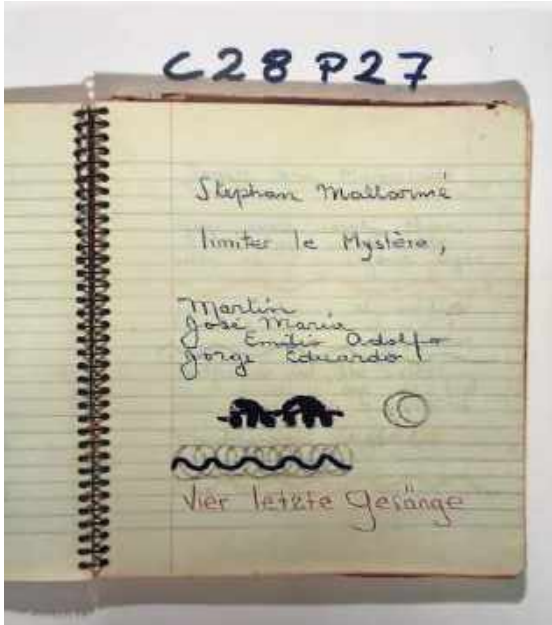 C28 P27
Stephan Mallarmé
limiter le Mystère,
Martín
José María
Emilio Adolfo
Jorge Eduardo
Vier letzte Gesänge